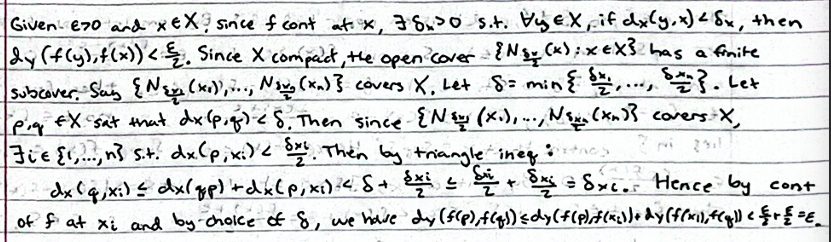 Given ε>0 and x∈X, since f cont at x, ∃ δₓ>0 s.t. ∀y∈X, if dₓ(y,x)<δₓ, then
d_y(f(y),f(x))<ε/2. Since X compact, the open cover {N_{δₓ/2}(x) : x∈X} has a finite
subcover. Say {N_{δx₁/2}(x₁),..., N_{δxₙ/2}(xₙ)} covers X. Let δ = min{δx₁/2,..., δxₙ/2}. Let
p,q ∈X sat that dₓ(p,q)<δ. Then since {N_{δx₁/2}(x₁),..., N_{δxₙ/2}(xₙ)} covers X,
∃i∈{1,...,n} s.t. dₓ(p,xᵢ)<δxᵢ/2. Then by triangle ineq:
dₓ(q,xᵢ) ≤ dₓ(q,p)+dₓ(p,xᵢ) < δ + δxᵢ/2 ≤ δxᵢ/2 + δxᵢ/2 = δxᵢ. Hence by cont
of f at xᵢ and by choice of δ, we have d_y(f(p),f(q)) ≤ d_y(f(p),f(xᵢ))+d_y(f(xᵢ),f(q)) < ε/2+ε/2=ε.